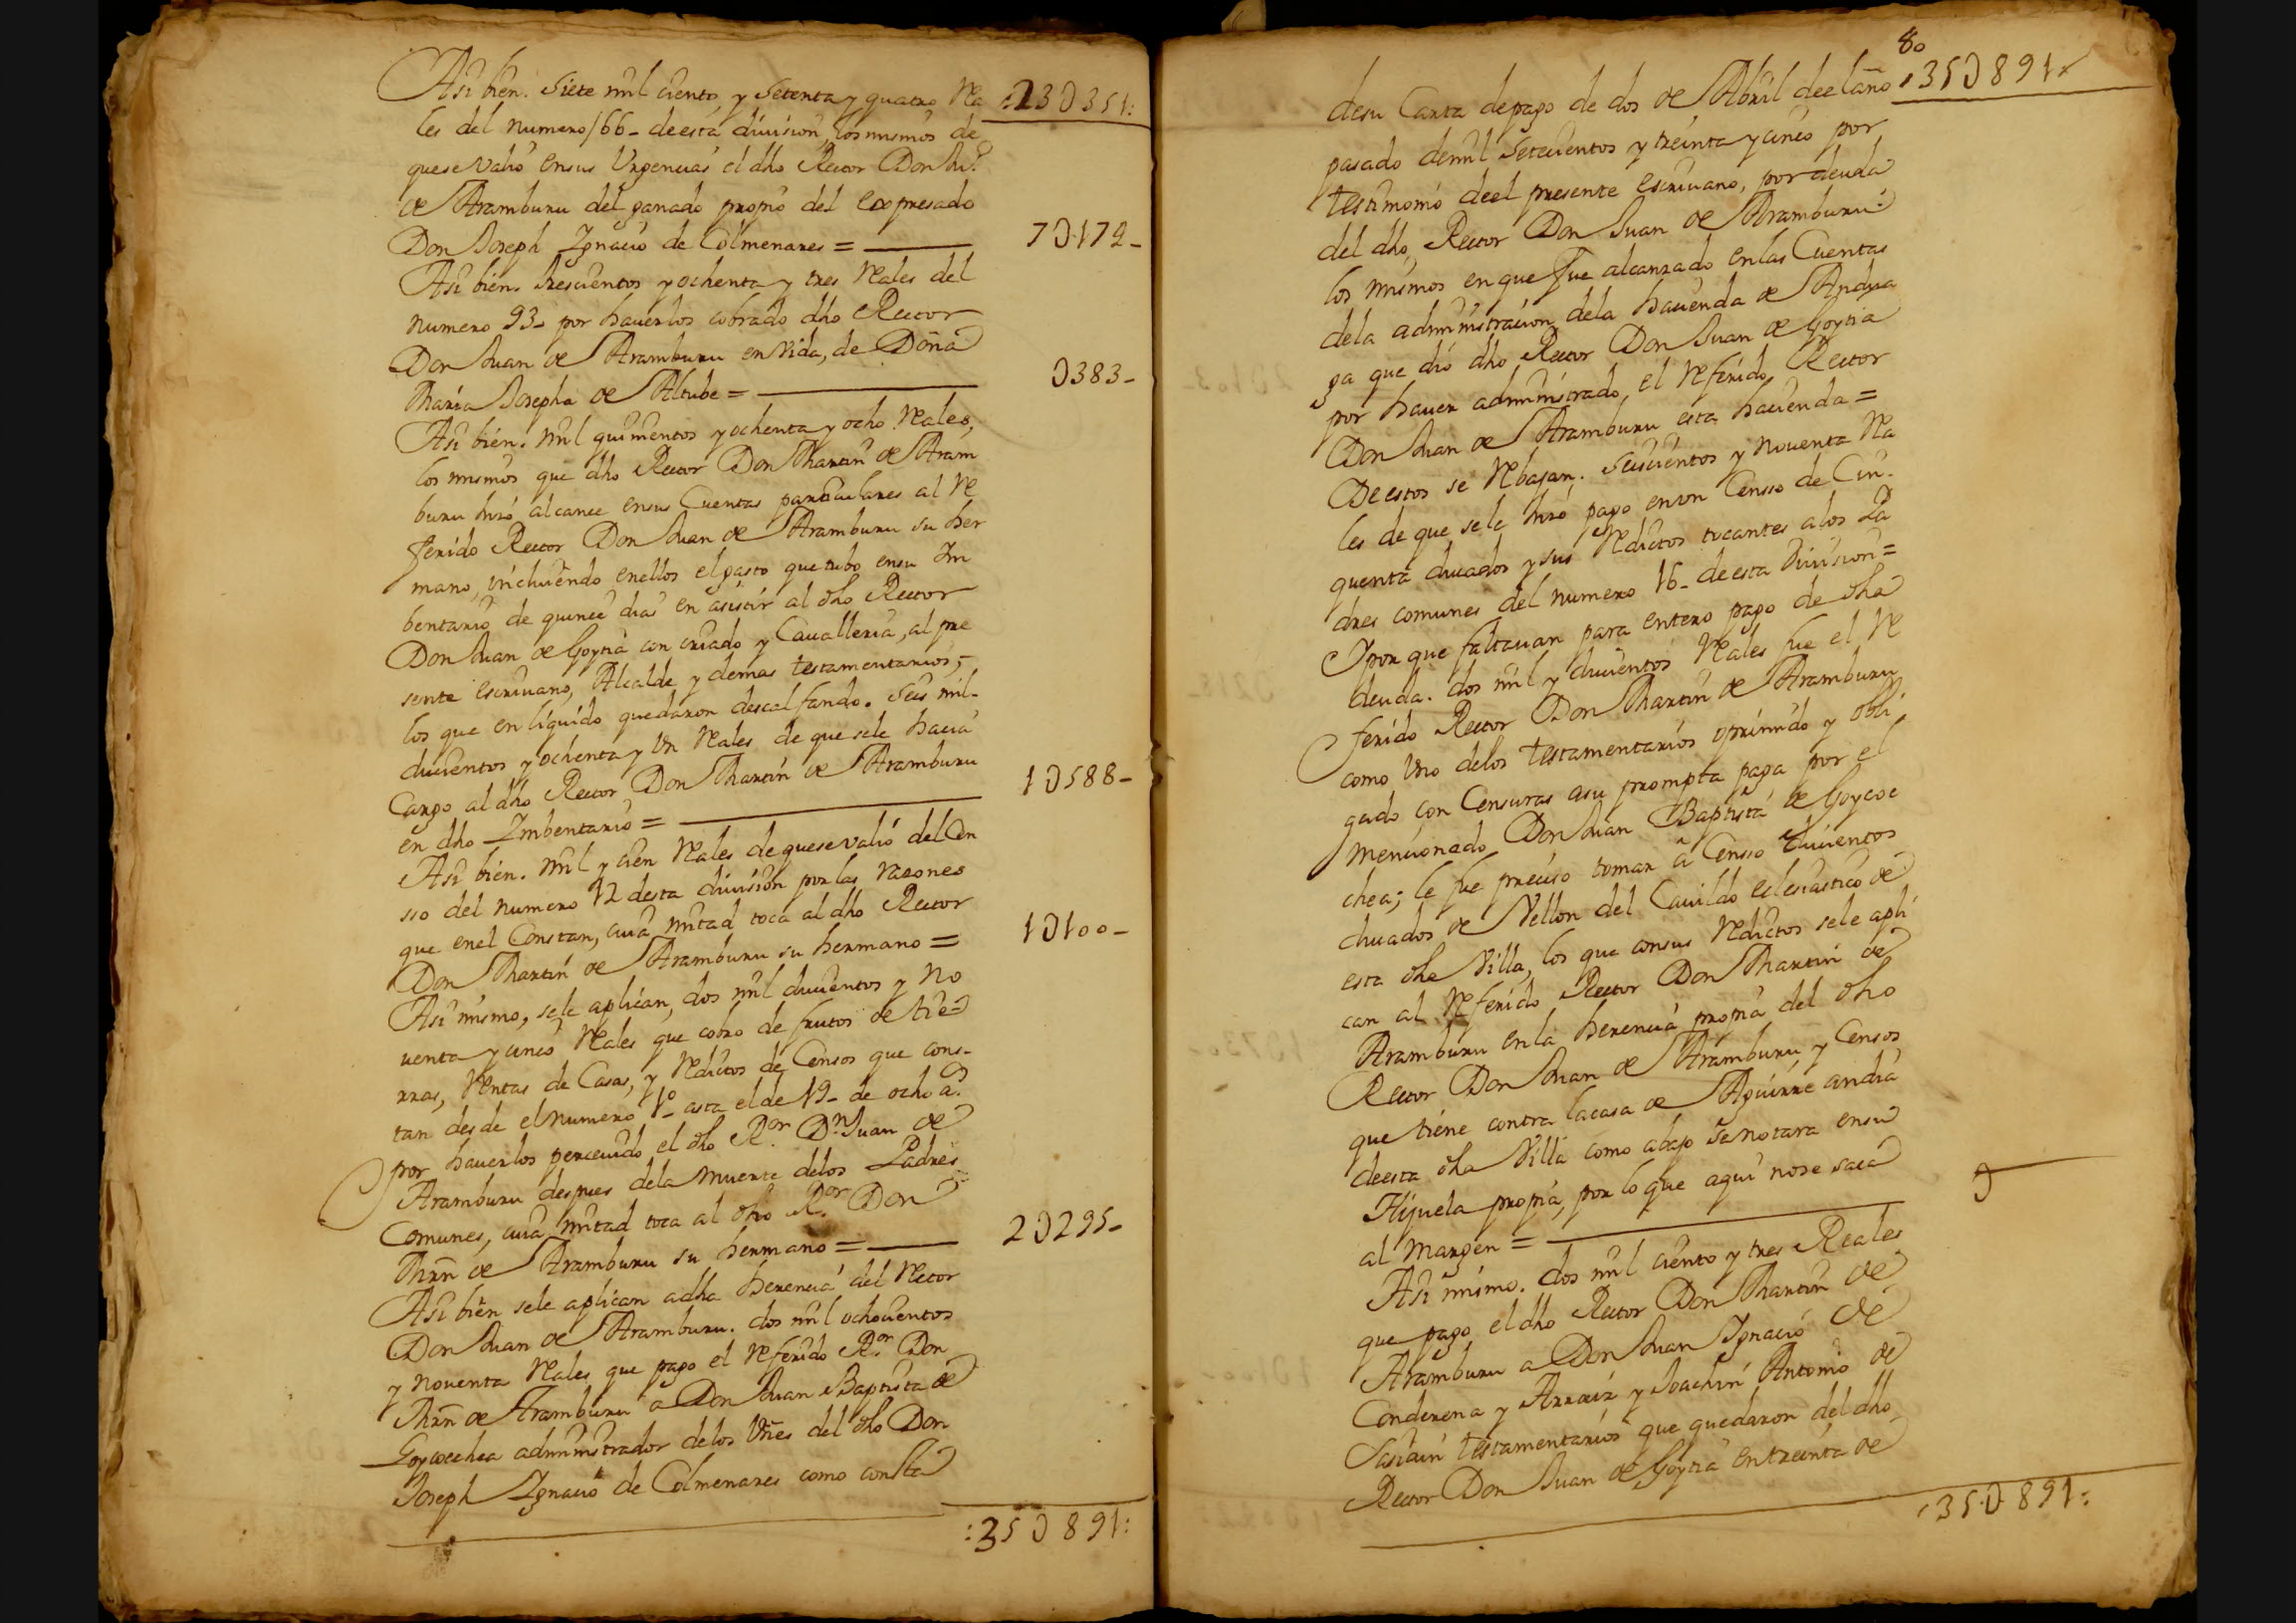 Asi bien. Siete mil ciento, y Setenta y quatro Rea :23U351:
les del numero 166- de esta division, los mismos de
que se valio en sus Urgencias el dho Rector Don Ju.º
de Aramburu del ganado propio del expresado
Don Joseph Ygnacio de Colmenares = 7U172-
Asi bien. trescientos y ochenta y tres Reales del
numero 93- por hauerlos cobrado dho Rector
Don Juan de Aramburu en vida, de Doña
Maria Josepha de Altube = U383-
Asi bien. mil quinientos y ochenta y ocho Reales,
los mismos que dho Rector Don Martin de Aram
buru hizo alcance en sus Cuentas particulares al Re
ferido Rector Don Juan de Aramburu su her
mano, incluiendo en ellos el gasto que tubo en su Im
bentario de quince dias en asistir al dho Rector
Don Juan de Goytia con criado y Caualleria, al pre
sente escriuano, Alcalde y demas testamentarios,
los que en liquido quedaron descalfando. Seis mil
ducientos y ochenta y Un Reales de que se le hacia
Cargo al dho Rector Don Martin de Aramburu
en dho Imbentario = 1U588-
Asi bien. mil y cien Reales de que se valio del Cen
sso del numero 12 desta division por las razones
que en el Constan, cuia mitad toca al dho Rector
Don Martin de Aramburu su hermano = 1U100-
Asi mismo, se le aplican, dos mil ducientos y no
uenta y cinco Reales que cobro de frutos de tie=
rras, Rentas de Casas, y Reditos de Censos que cons-
tan desde el numero 1º- asta el de 19- de ocho a.s
por hauerlos perceuido el dho R.or D.n Juan de
Aramburu despues de la muerte de los Padres
Comunes, cuia mitad toca al dho R.or Don
Mrn de Aramburu su hermano = 2U295-
Asi bien se le aplican a dha herencia del Retor
Don Juan de Aramburu. dos mil ochocientos
y nouenta Reales que pago el Referido R.or Don
Mrn de Aramburu a Don Juan Baptista de
Goycoechea administrador de los Vnes del dho Don
Joseph Ygnacio de Colmenares como consta
:35U891:
80
de su Carta de pago de dos de Abril de el año :35U891:
pasado de mil Setecientos y treinta y cinco por
testimonio de el presente escriuano, por deuda
del dho, Rector Don Juan de Aramburu:
los mismos en que fue alcanzado en las Cuentas
de la administracion de la hacienda de Andua
ga que dio dho Rector Don Juan de Goytia
por hauer administrado, el Referido Rector
Don Juan de Aramburu esta hacienda =
De estos se Rebajan. Seiscientos y nouenta Rea
les de que se le hizo pago en un Censso de Cin-
quenta ducados y sus Reditos tocantes a los Pa
dres comunes del numero 16- de esta Division =
Y por que faltauan para entero pago de dha
deuda. dos mil y ducientos Reales fue el Re
ferido Rector Don Martin de Aramburu
como Uno de los testamentarios oprimido y obli
gado con Censuras a su prompta paga por el
mencionado Don Juan Baptista de Goycoe
chea; le fue preciso tomar a Censso ducientos
ducados de Vellon del Cauildo eclesiastico de
esta dha Villa, los que con sus Reditos se le apli
can al Referido Rector Don Martin de
Aramburu en la herencia propia del dho
Rector Don Juan de Aramburu y Censos
que tiene contra la casa de Aguirre andia
de esta dha Villa como abajo se notara en su
Hijuela propia, por lo que aqui no se saca
al margen = U
Asi mismo. dos mil ciento y tres Reales
que pago el dho Rector Don Martin de
Aramburu a Don Juan Ygnacio de
Conderena y Arraiz y Joachin Antonio de
Sasiain testamentarios que quedaron del dho
Rector Don Juan de Goytia en treinta de
:35U891: